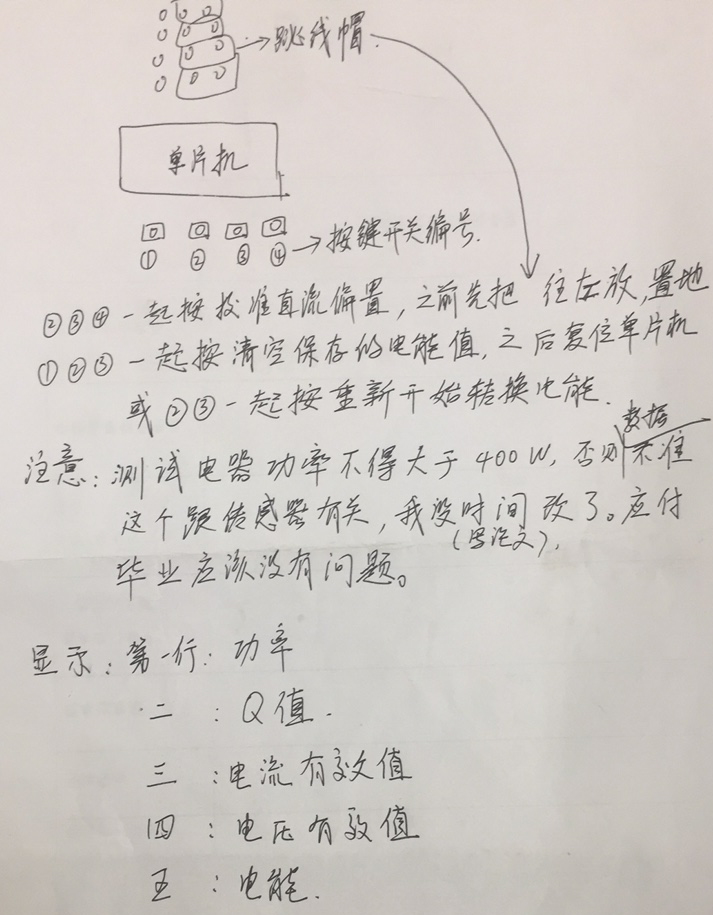 →跳线帽.
单片机
① ② ③ ④ →按键开关编号.
②③④一起按校准直流偏置，之前先把 往左放，置地
①②③一起按清空保存的电能值，之后复位单片机
或②③一起按重新开始转换电能.
注意：测试电器功率不得大于400W，否则数据不准
这个跟传感器有关，我没时间改了。应付
(写论文)，
毕业应该没有问题。
显示：第一行：功率
二：Q值.
三：电流有效值
四：电压有效值
五：电能.